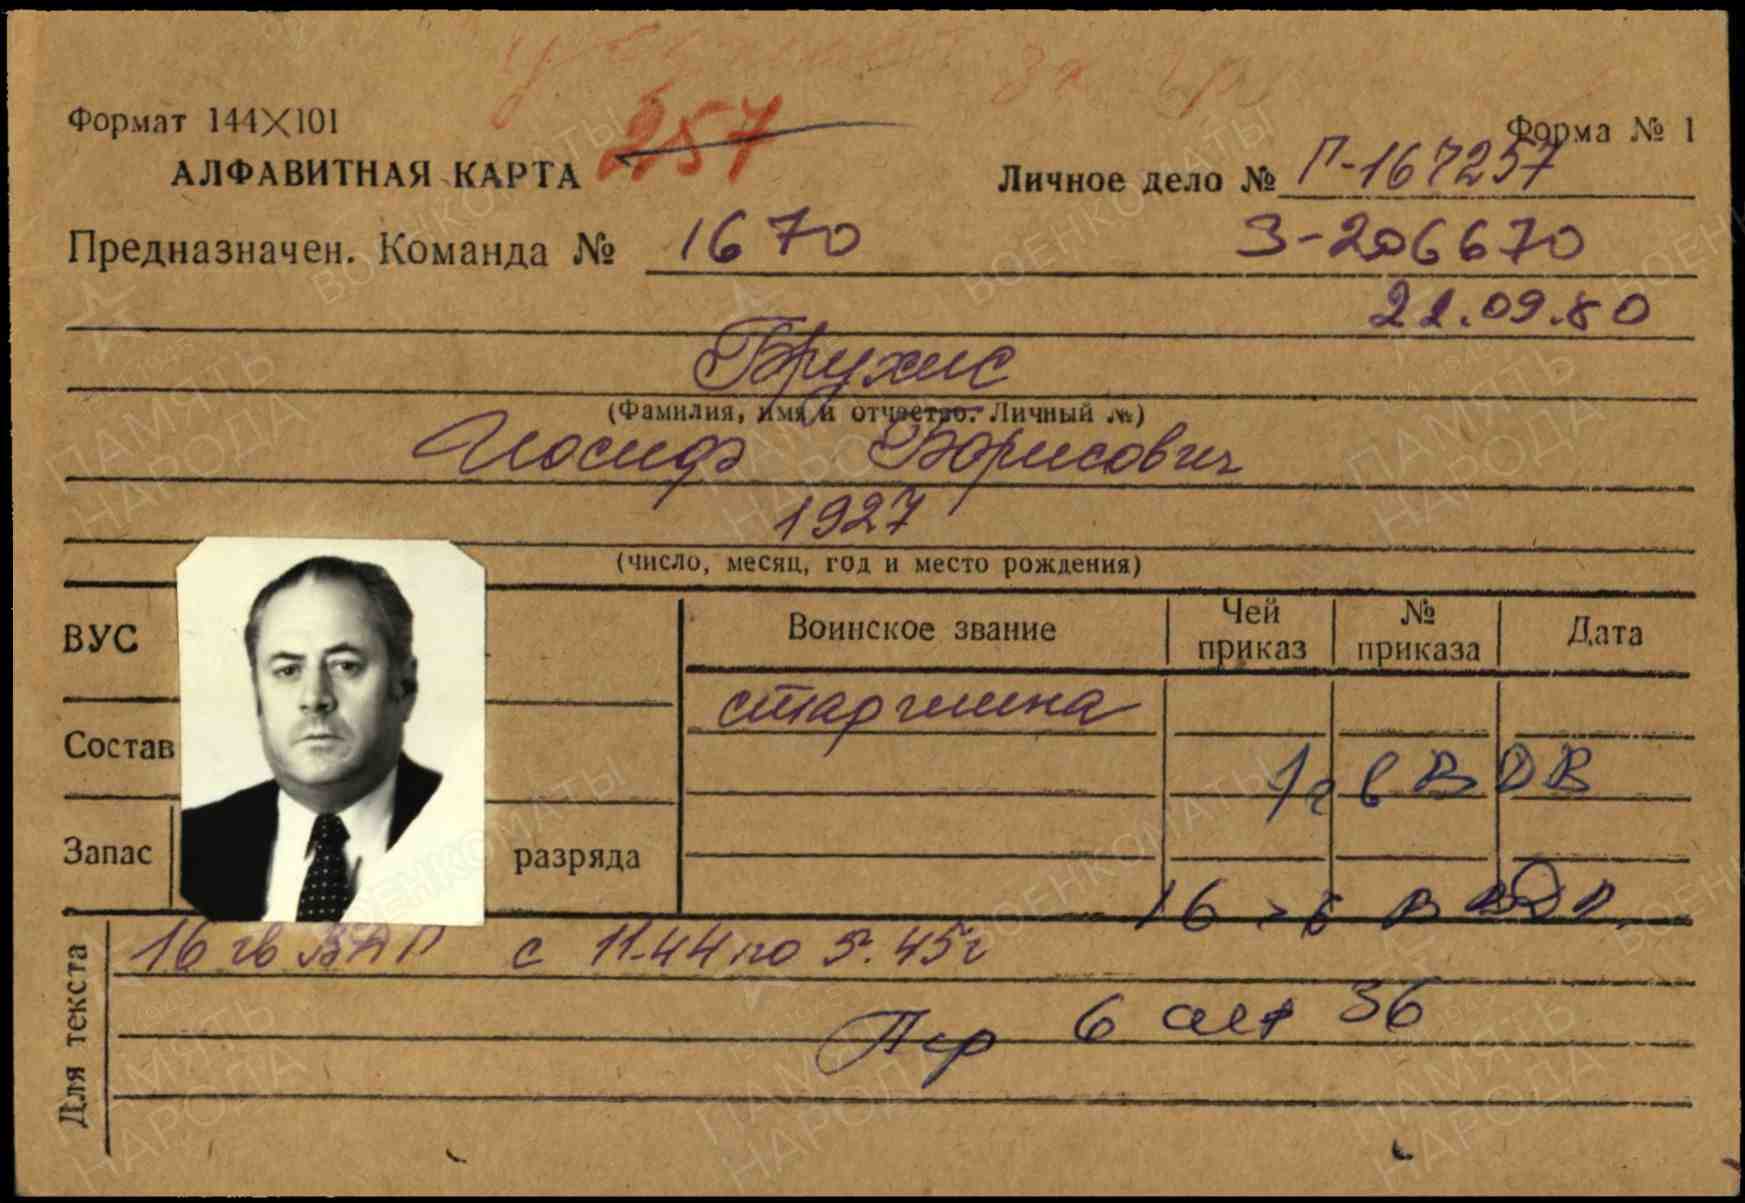 Формат 144X101
257
Форма № 1
АЛФАВИТНАЯ КАРТА
Личное дело № Г-167257
Предназначен. Команда № 1670
З-206670
22.09.80
Брухис
(Фамилия, имя и отчество. Личный №)
Иосиф Борисович
1927
(число, месяц, год и место рождения)
ВУС
Состав
Запас
разряда
Воинское звание
Чей приказ
№ приказа
Дата
старшина
1 гв ВДВ
16 гв
Для текста
16 гв ВДП с 11.44 по 5.45г
6
36
ПАМЯТЬ НАРОДА
ВОЕНКОМАТЫ